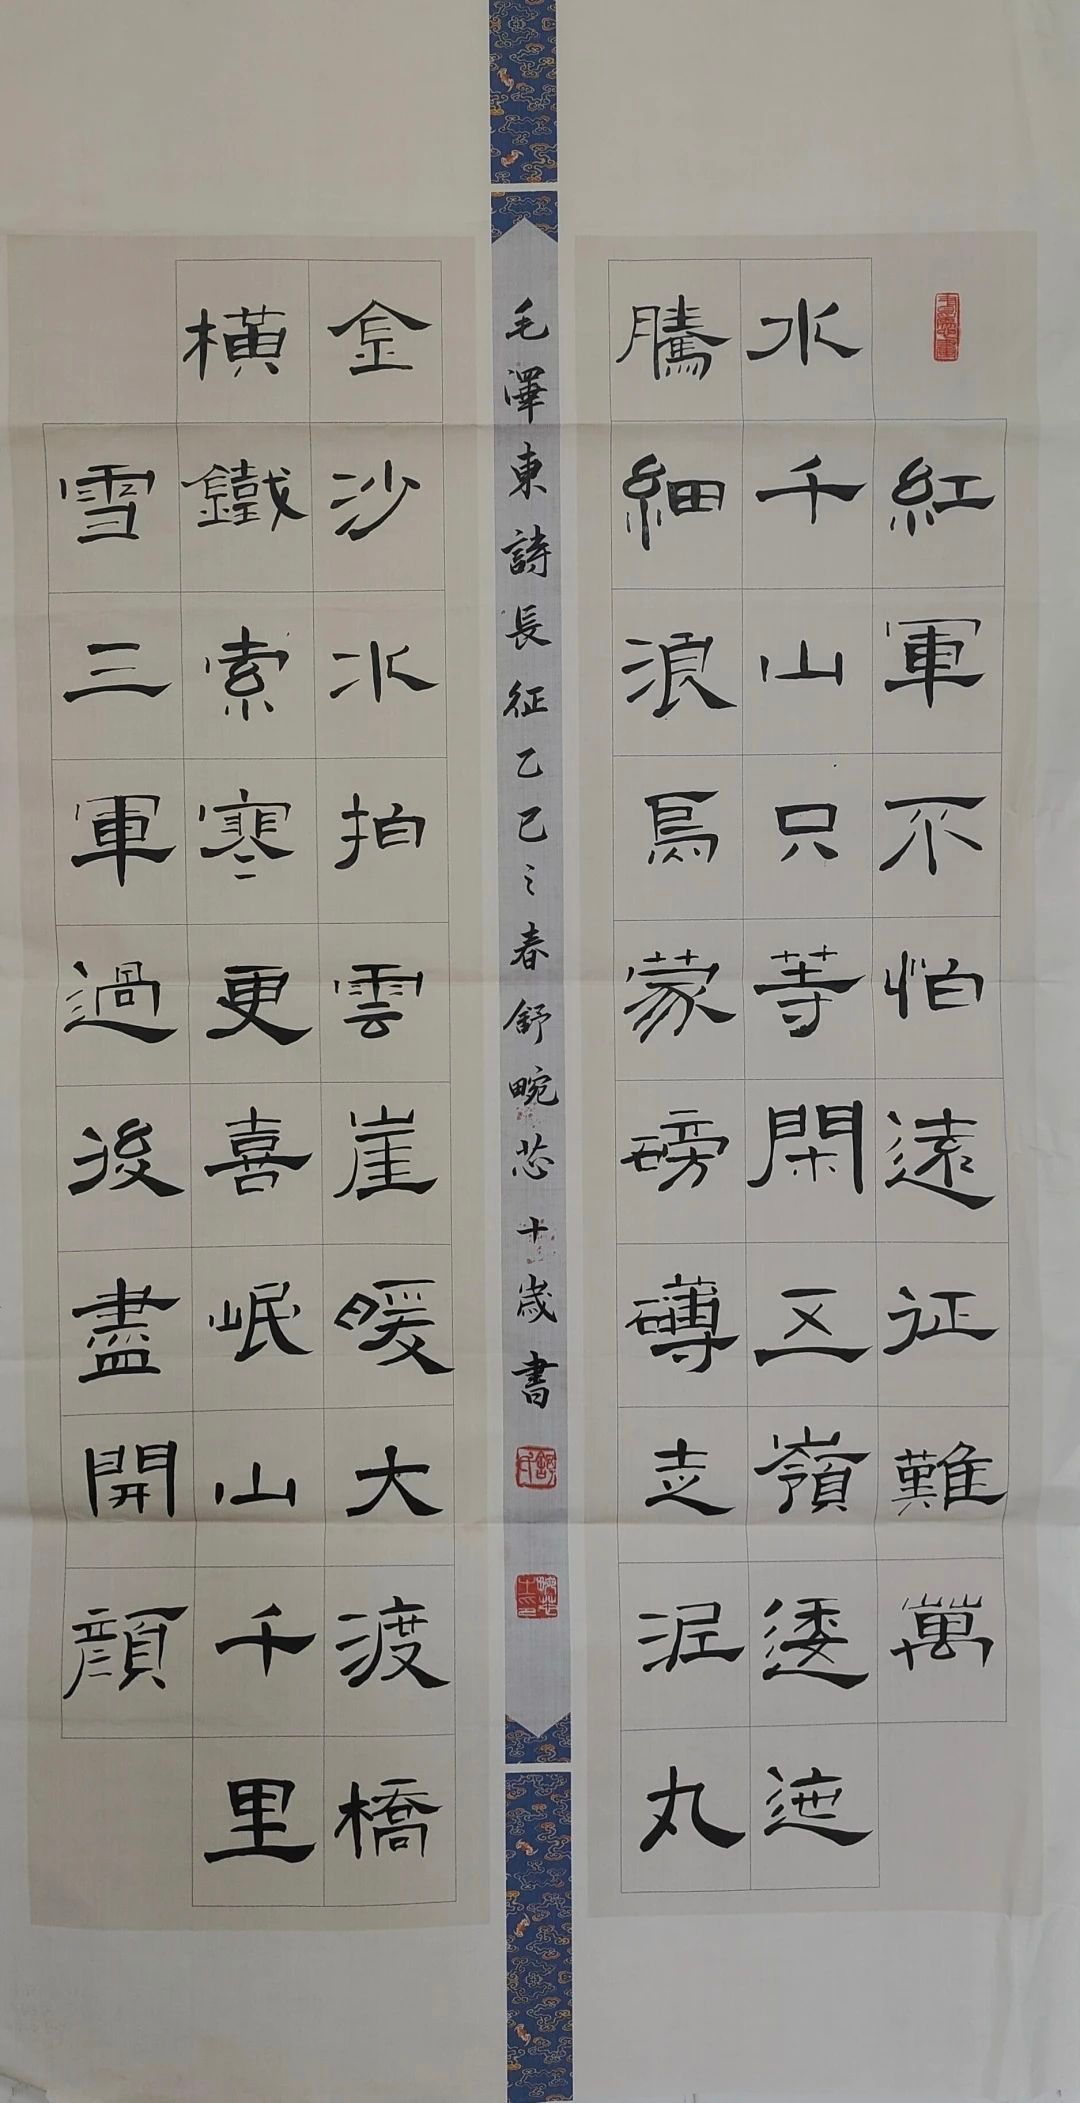 紅軍不怕遠征難萬
水千山只等閑五嶺逶迤
騰細浪烏蒙磅礴走泥丸
金沙水拍雲崖暖大渡橋
橫鐵索寒更喜岷山千里
雪三軍過後盡開顏
毛澤東詩長征乙巳之春舒畹芯十歲書